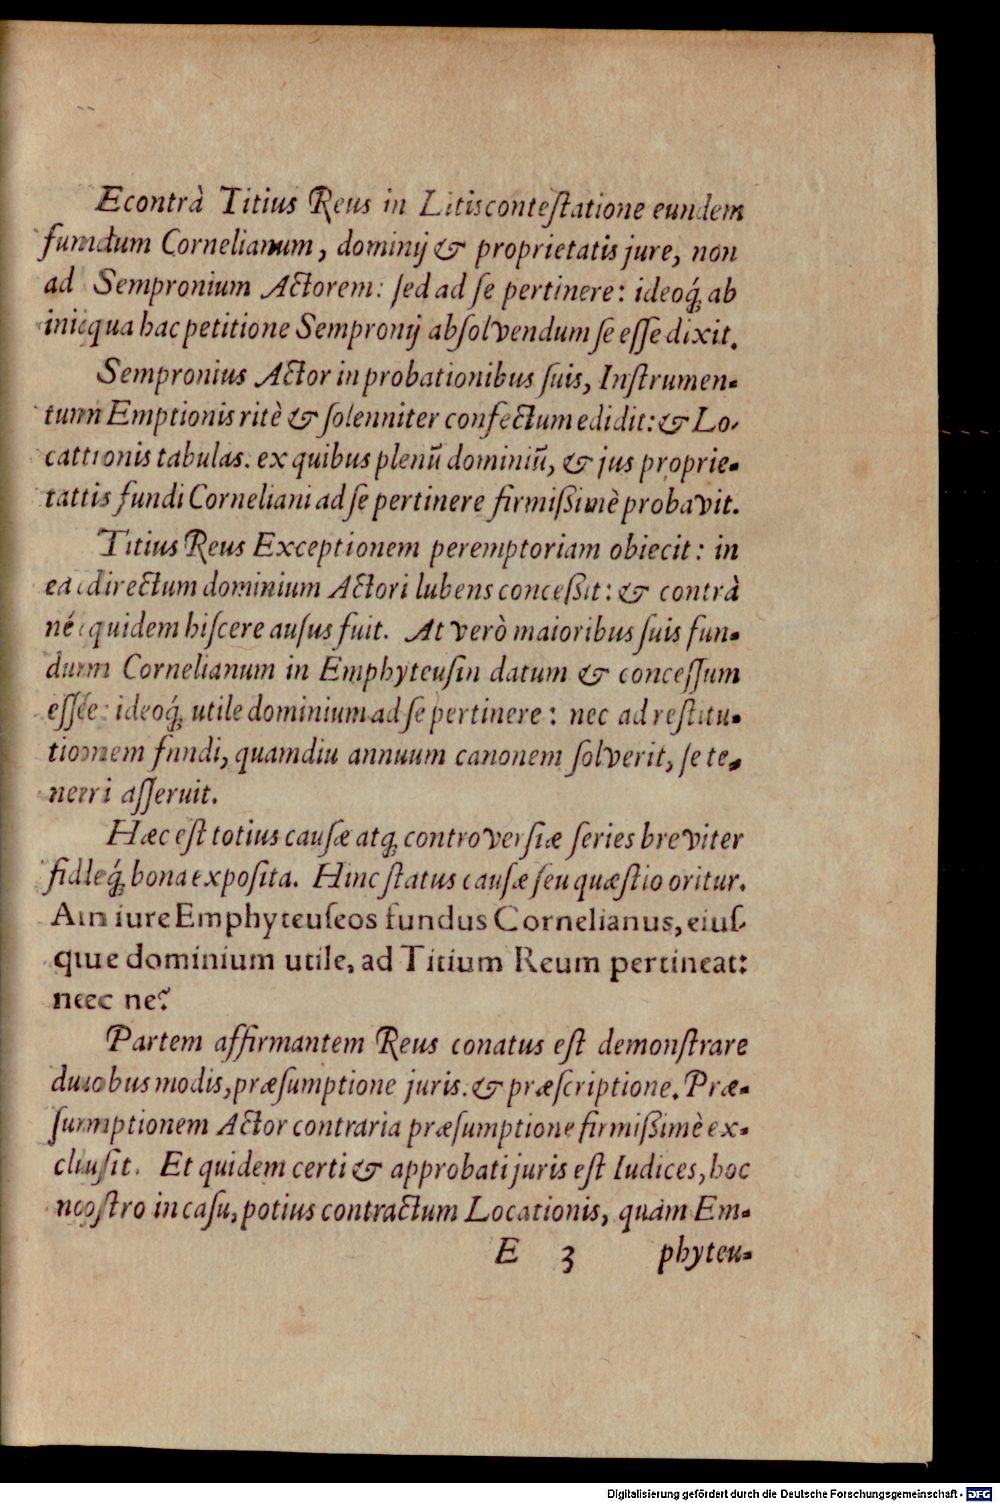 Econtrà Titius Reus in Litiscontestatione eundem
fundum Cornelianum, dominij & proprietatis jure, non
ad Sempronium Actorem: sed ad se pertinere: ideoq́; ab
iniqua hac petitione Sempronij absolvendum se esse dixit.
Sempronius Actor in probationibus suis, Instrumen-
tum Emptionis ritè & solenniter confectum edidit: & Lo-
cationis tabulas. ex quibus plenū dominiū, & jus proprie-
tatis fundi Corneliani ad se pertinere firmißimè probavit.
Titius Reus Exceptionem peremptoriam obiecit: in
ea directum dominium Actori lubens conceßit: & contrà
ne quidem hiscere ausus fuit. At verò maioribus suis fun-
dum Cornelianum in Emphyteusin datum & concessum
esse: ideoq́; utile dominium ad se pertinere: nec ad restitu-
tionem fundi, quamdiu annuum canonem solverit, se te-
neri asseruit.
Hæc est totius causæ atq; controversiæ series breviter
fideq́; bona exposita. Hinc status causæ seu quæstio oritur.
An iure Emphyteuseos fundus Cornelianus, eius-
que dominium utile, ad Titium Reum pertineat:
nec ne?
Partem affirmantem Reus conatus est demonstrare
duobus modis, præsumptione juris. & præscriptione. Præ-
sumptionem Actor contraria præsumptione firmißimè ex-
clusit. Et quidem certi & approbati juris est Iudices, hoc
nostro in casu, potius contractum Locationis, quàm Em-
E 3 phyteu-
Digitalisierung gefördert durch die Deutsche Forschungsgemeinschaft - DFG